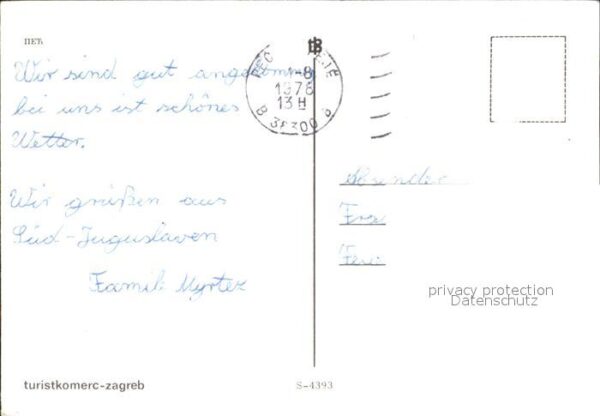 ПЕЋ
Wir sind gut angekommen
bei uns ist schönes
Wetter.
Wir grüßen aus
Süd-Juguslaven
Famili Myrtez
PEĆ
-8
1978
13 H
8 38300 8
Absender
Fra
privacy protection
Datenschutz
turistkomerc-zagreb
S-4393